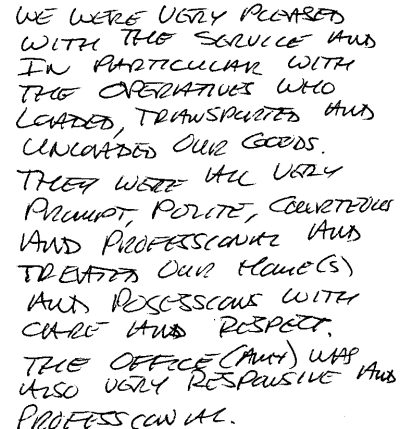 WE WERE VERY PLEASED
WITH THE SERVICE AND
IN PARTICULAR WITH
THE OPERATIVES WHO
LOADED, TRANSPORTED AND
UNLOADED OUR GOODS.
THEY WERE ALL VERY
PROMPT, POLITE, COURTEOUS
AND PROFESSIONAL AND
TREATED OUR HOME(S)
AND POSESSIONS WITH
CARE AND RESPECT.
THE OFFICE (AMY) WAS
ALSO VERY RESPONSIVE AND
PROFESSIONAL.